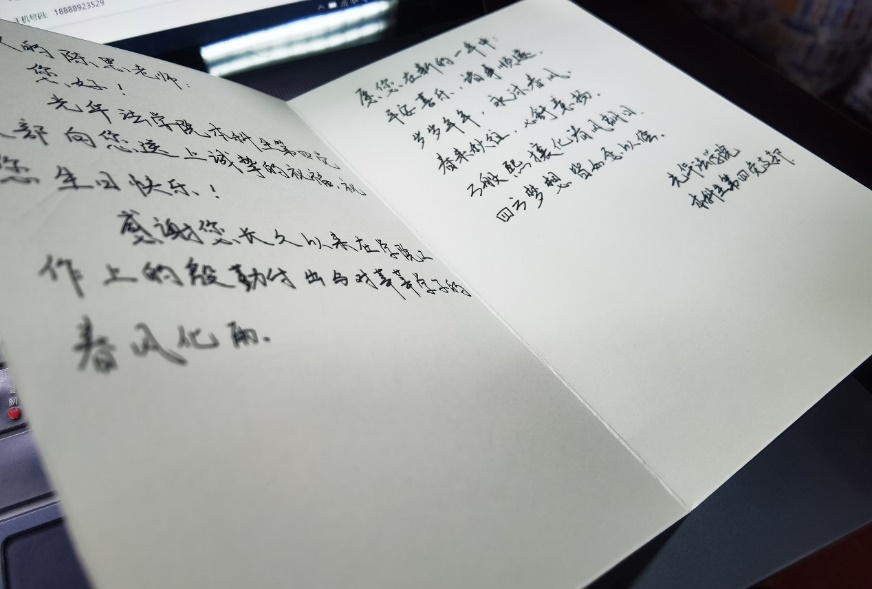 手机号码: 18888923529
的陈思老师:
您好!
光华法学院本科生第四党
部向您送上诚挚的祝福,祝
您生日快乐!
感谢您长久以来在学院工
作上的殷勤付出与对莘莘学子的
春风化雨.
愿您在新的一年中:
平安喜乐、诸事顺遂.
岁岁年年,永沐春风.
春来秋往,心舒意畅.
万般熙攘化春风朗月.
四方梦想皆如愿以偿.
光华法学院
本科生第四党支部